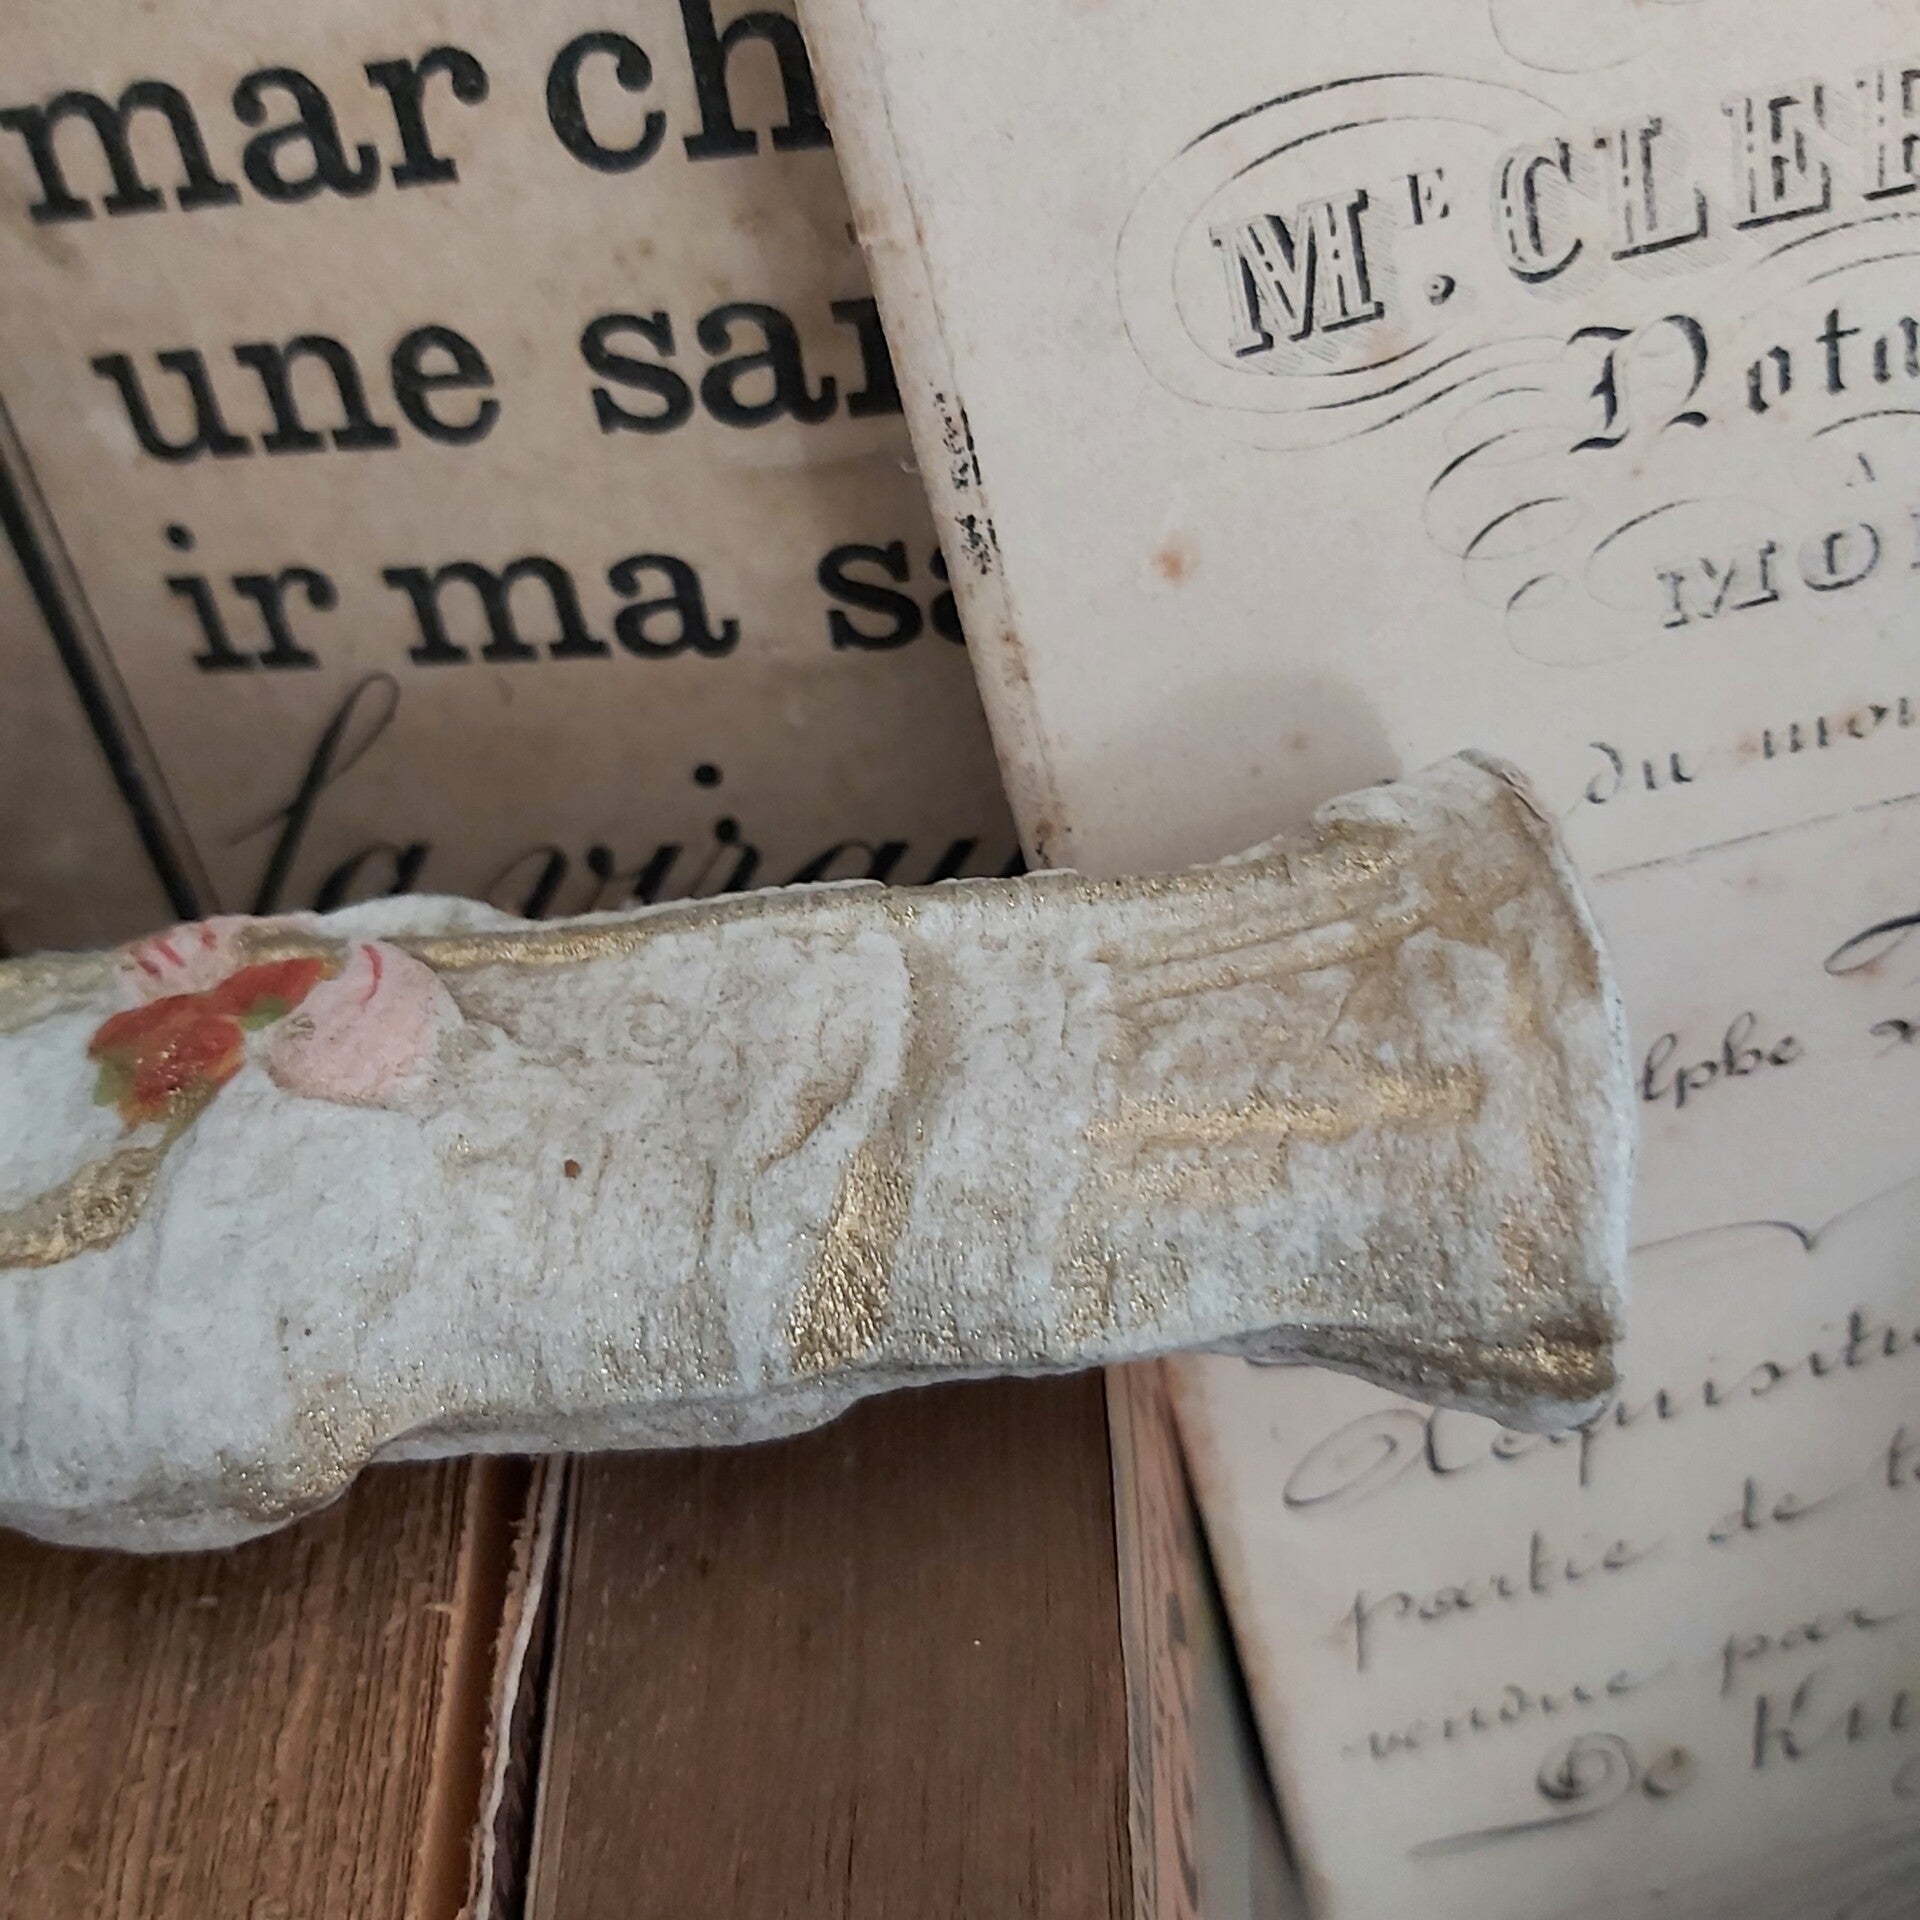 mar ch
une sa
ir ma sa
la vi
Mᴱ. CLE
Nota
A
MO
du mo
Acquisiti
partie de t
vendue par
De K